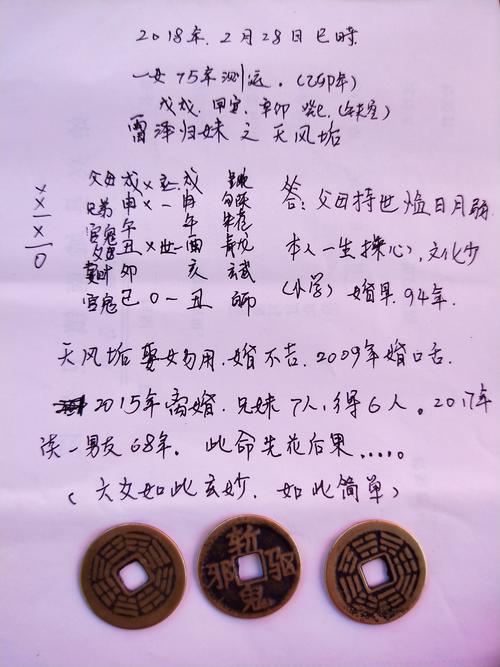 2018年.2月28日巳时
一女75年测运.(乙卯年)
戊戌.甲寅.辛卯 癸巳(午未空)
雷泽归妹之天风姤
父母 戌 X 应 戌
兄弟 申 X 一 申 勾陈
官鬼 午 午 朱雀
父母 丑 X 世 一 酉 青龙
妻财 卯 亥 玄武
官鬼 巳 O 一 丑
X
X
—
X
—
O
答:父母持世临日月弱
本人一生操心,文化少
(小学) 婚早.94年.
天风姤娶女勿用.婚不吉.2009年婚口舌.
2015年离婚.兄妹7人,得6人。2017年
谈一男友68年. 此命先花后果.....。
(六爻如此玄妙.如此简单)
斩
邪 驱
鬼